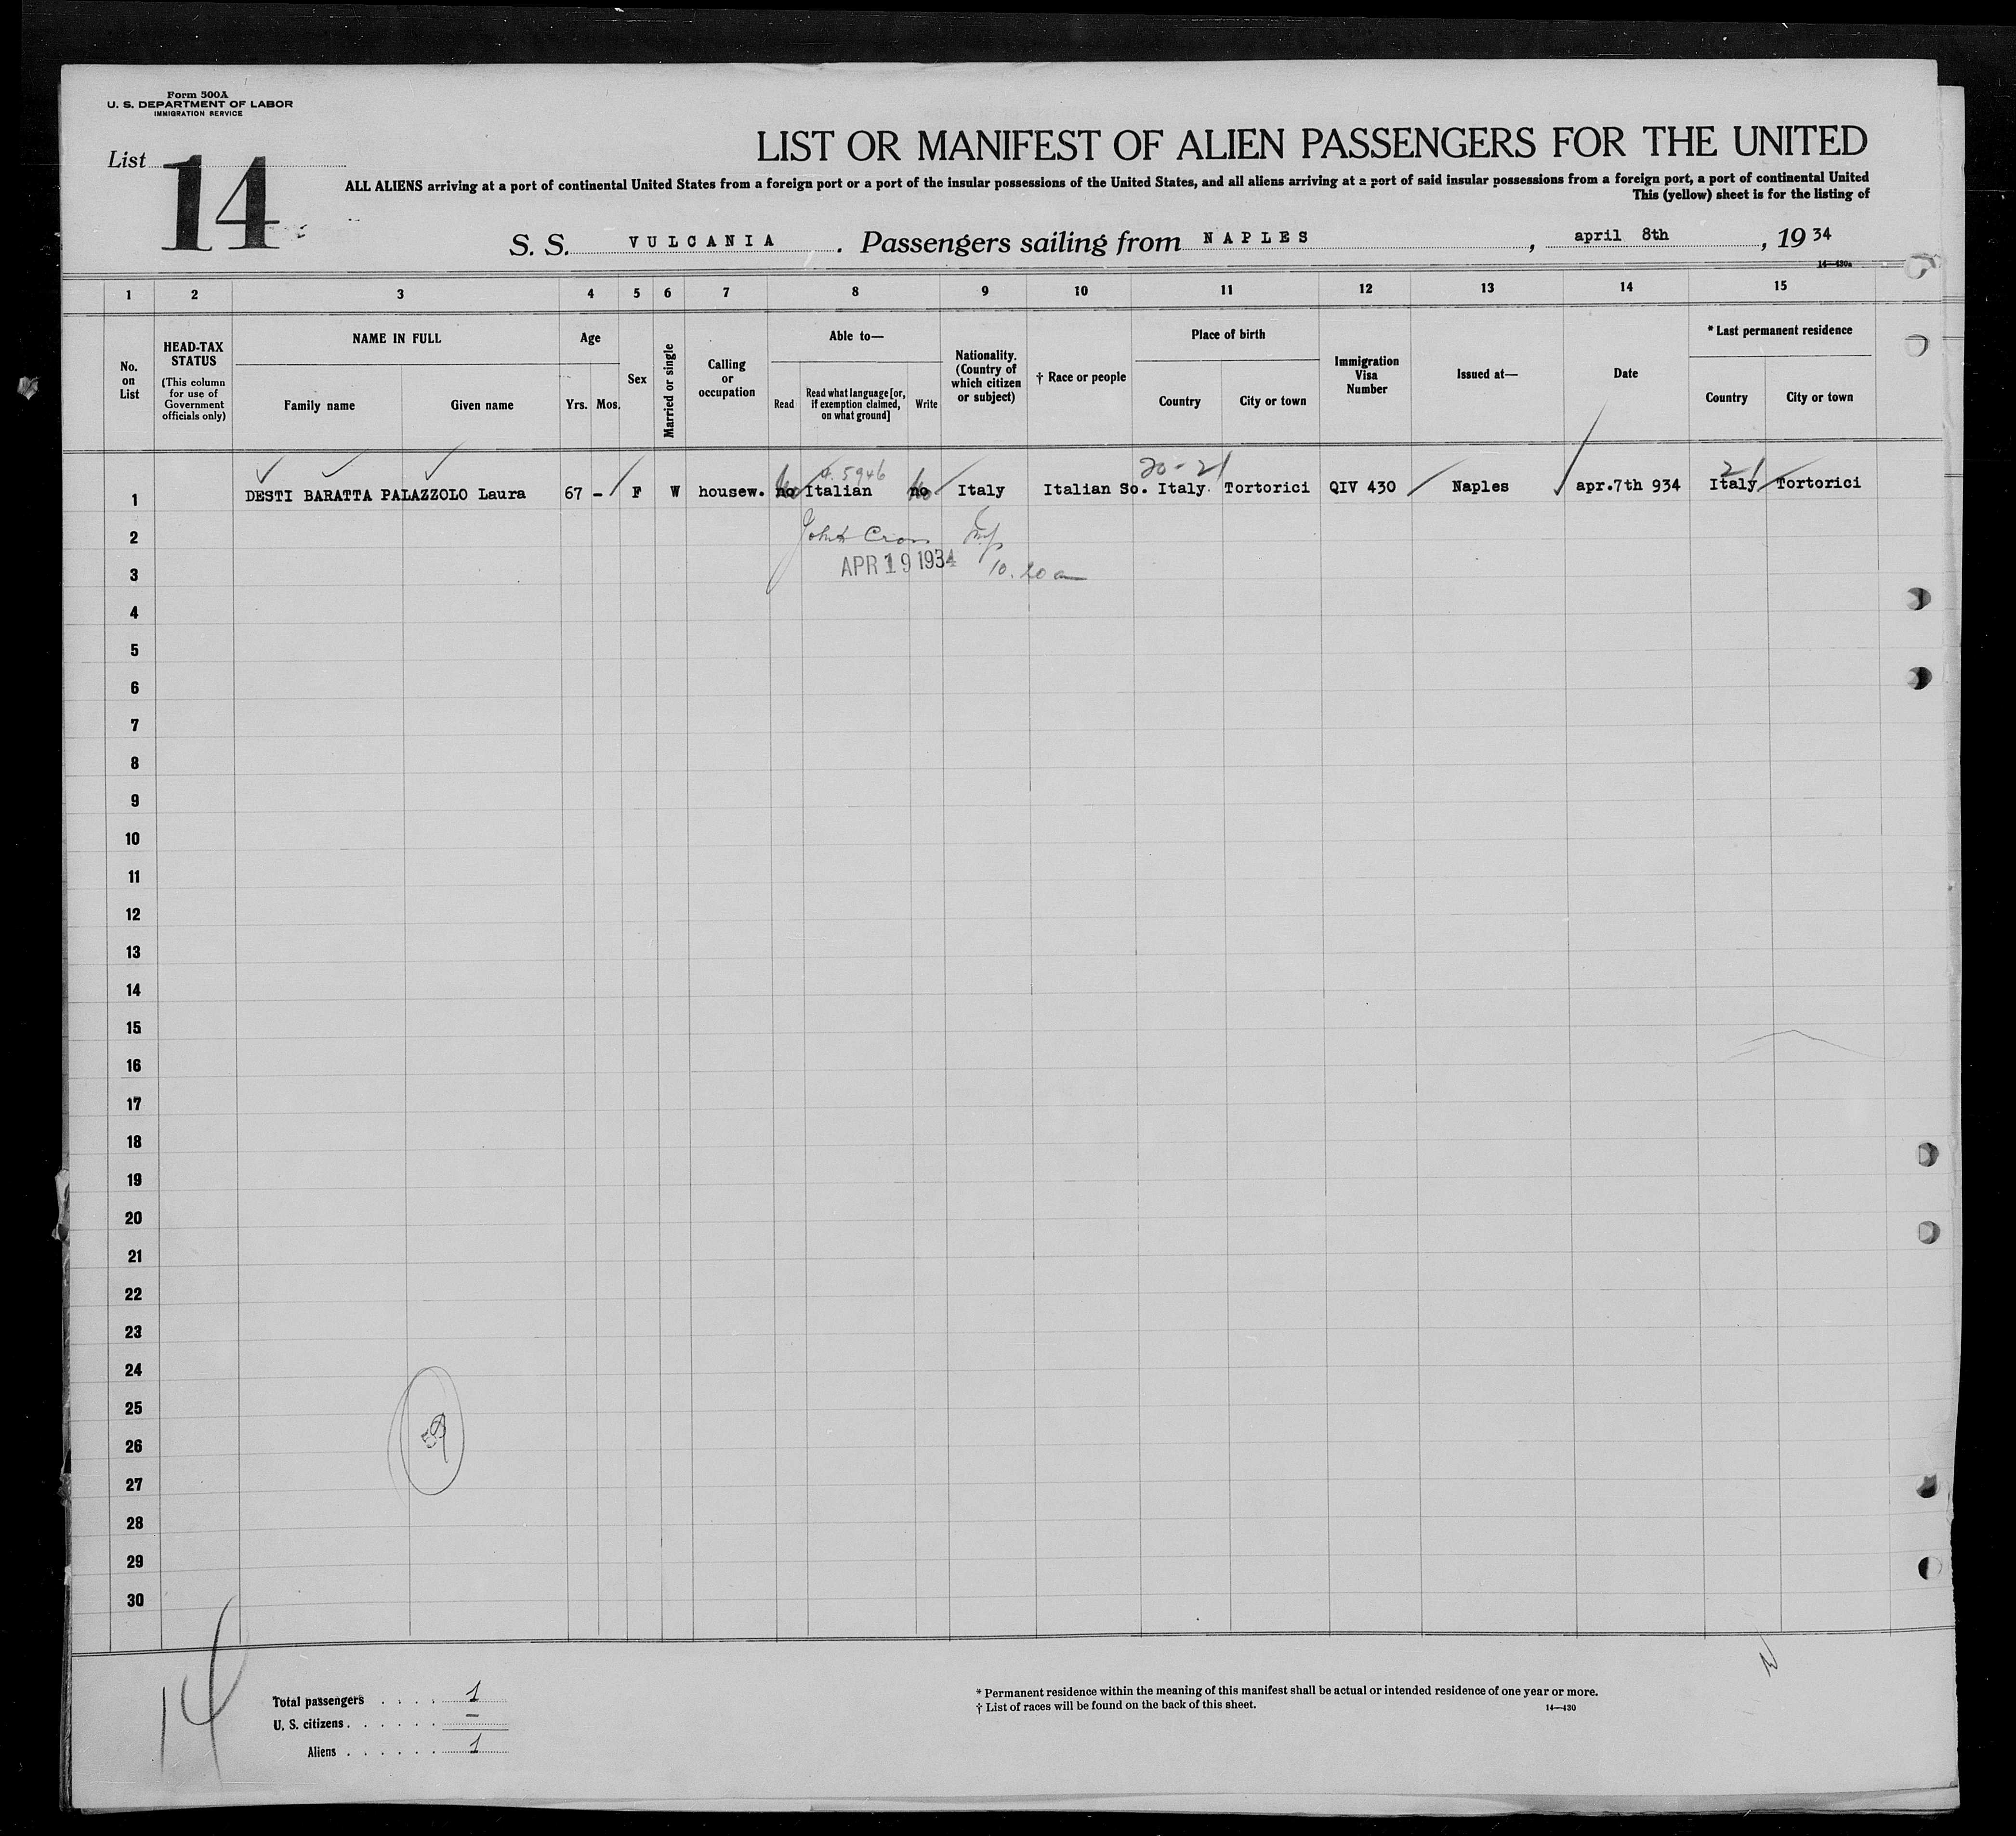 Form 500A
U. S. DEPARTMENT OF LABOR
IMMIGRATION SERVICE
List 14
LIST OR MANIFEST OF ALIEN PASSENGERS FOR THE UNITED
ALL ALIENS arriving at a port of continental United States from a foreign port or a port of the insular possessions of the United States, and all aliens arriving at a port of said insular possessions from a foreign port, a port of continental United
This (yellow) sheet is for the listing of
S. S. VULCANIA. Passengers sailing from NAPLES, april 8th, 1934
14—430a
1 2 3 4 5 6 7 8 9 10 11 12 13 14 15
No. on List
HEAD-TAX STATUS
(This column for use of Government officials only)
NAME IN FULL
Family name Given name
Age
Yrs. Mos.
Sex
Married or single
Calling or occupation
Able to—
Read
Read what language [or, if exemption claimed, on what ground]
Write
Nationality. (Country of which citizen or subject)
† Race or people
Place of birth
Country City or town
Immigration Visa Number
Issued at—
Date
* Last permanent residence
Country City or town
5946 20-21 21
1 DESTI BARATTA PALAZZOLO Laura 67 - F W housew. no Italian no Italy Italian So. Italy. Tortorici QIV 430 Naples apr.7th 934 Italy Tortorici
2 John Cross
3 APR 19 1934 10.20 a
4
5
6
7
8
9
10
11
12
13
14
15
16
17
18
19
20
21
22
23
24
25
26
27
28
29
30
14
Total passengers . . . . 1
U. S. citizens . . . . . . –
Aliens . . . . . . 1
* Permanent residence within the meaning of this manifest shall be actual or intended residence of one year or more.
† List of races will be found on the back of this sheet.
14—430